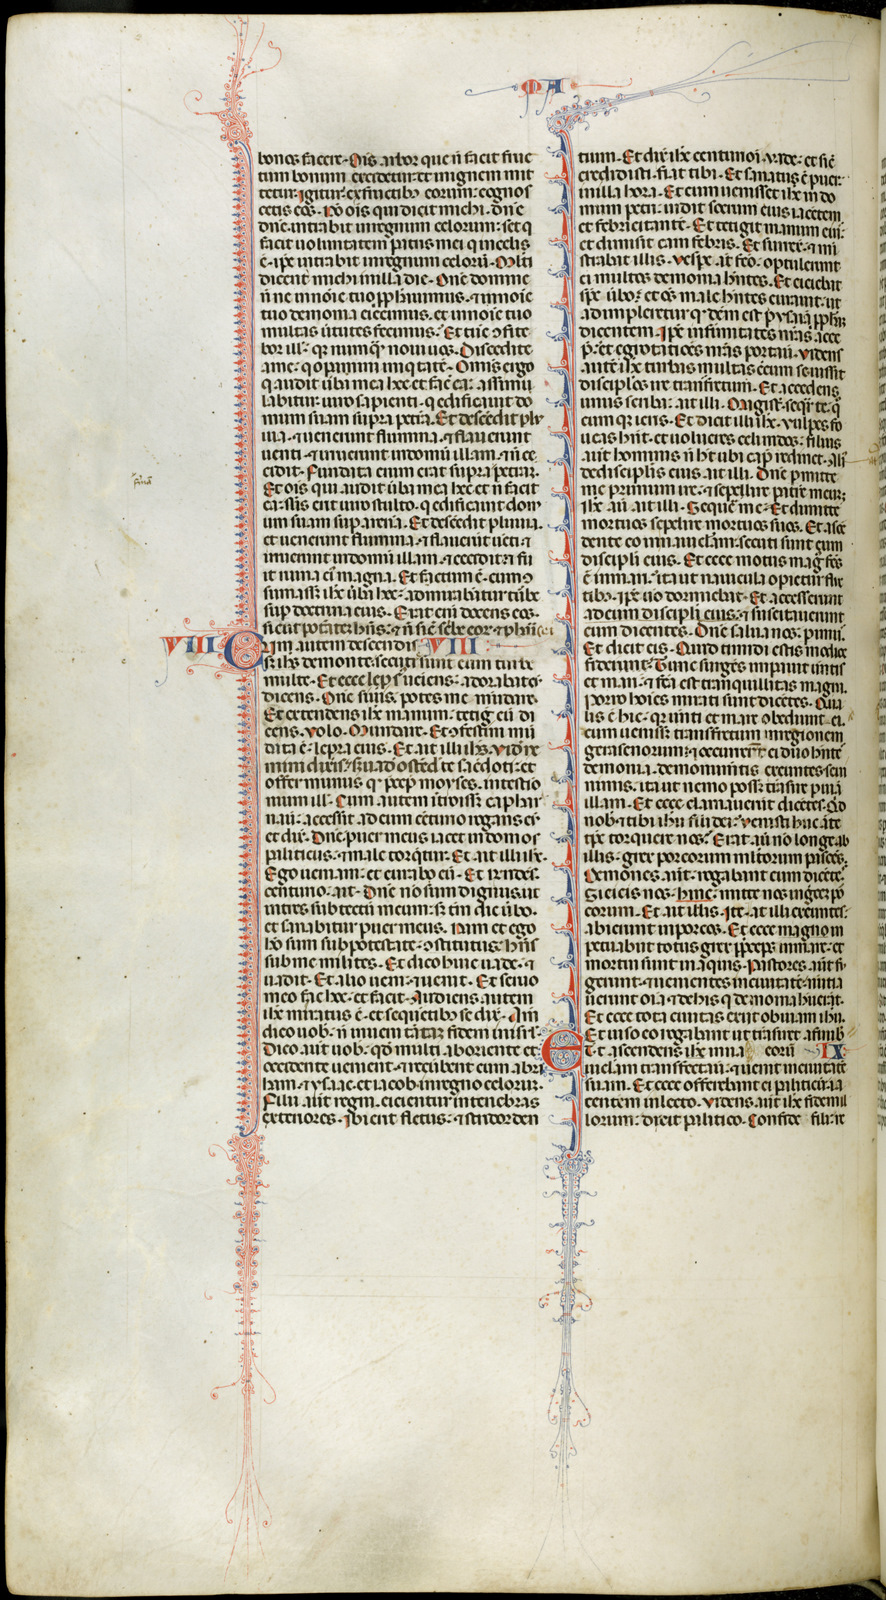 MA
bonos facere. Oīs arbor que n̄ facit fruc
tum bonum excidetur et in ignem mit
tetur. Igitur ex fructibꝰ eorum: cognos
cetis eos. Nō oīs qui dicit michi. dn̄e
dn̄e. intrabit in regnum celorum: set q
facit uoluntatem patris mei q in celis
ē. ip̄e intrabit in regnum celorū. Multi
dicent michi in illa die. Dn̄e domine
n̄ ne in noīe tuo ꝓphauimus. ⁊ in noīe
tuo demonia eiecimus. et in noīe tuo
multas uirtutes fecimus. Et tūc ɔfite
bor illis. qꝛ numq̄ noui uos. Discedite
a me. q opamini iniqtatē. Omnis ergo
q audit ūba mea hec et fac ea. assimi
labitur uiro sapienti. q edificauit do
mum suam supra petrā. Et descēdit plu
uia. ⁊ uenerunt flumina. ⁊ flauerunt
uenti. ⁊ irruerunt in domū illam. ⁊ n̄ ce
cidit. Fundata enim erat supra petrā.
Et oīs qui audit ūba mea hec et n̄ facit
ea. sīlis erit uiro stulto. q edificauit dom
um suam sup arenā. Et descēdit pluuia.
et uenerunt flumina. ⁊ flauerūt uēti. ⁊
irruerunt in domū illam. ⁊ cecidit. ⁊ fu
it ruina eiꝰ magna. Et factum ē. cum ɔ
sumasset ih̄c ūba hec. admirabātur turbe
sup doctrina eius. Erat enī docens eos.
sicut potatē hn̄s. ⁊ n̄ sicē scribe eoꝝ ⁊ pharisei
VIII Cum autem descendis VIII
set ih̄s de monte. secuti sunt eum turbe
multe. Et ecce lepsus ueniens. adorabat eū
dicens. Dn̄e si uis. potes me mundare.
Et extendens ih̄c manum. tetigit eū di
cens. Volo. Mundare. Et ɔfestim mū
data ē lepra eius. Et ait illi ih̄s. Vide ne
mini dixeris. sed uade ostēde te sacēdoti. et
offer munus q p̄cep̄ moyses. in testio
nium illis. Cum autem itroisset caphar
naū. accessit ad eum cēturio rogans eū
et dix̄. Dn̄e puer meus iacet in domo
paliticus. ⁊ male torq̄tur. Et ait illi ih̄c.
Ego ueniam. et curabo eū. Et rn̄dēs.
centurio. ait. Dn̄e nō sum dignus ut
intres sub tectū meum. sꝫ tm̄ dic ūbo.
et sanabitur puer meus. Nam et ego
hō sum sub potestate ɔstitutus. hn̄s
sub me milites. Et dico huic uade. ⁊
uadit. Et alio ueni. ⁊ uenit. Et seruo
meo fac hec. et facit. Audiens autem
ih̄c miratus ē. et sequētibꝰ se dix̄. Am̄
dico uob̄. n̄ inueni tātam fidem in isrl̄.
Dico aūt uob̄. qđ multi ab oriente et
occidente uenient. ⁊ recūbent cum abra
ham. ⁊ ysaac. et iacob. in regno celorum.
Filii aūt regni. eicientur in tenebras
exteriores. Ibi erit fletus. ⁊ stridor den
tium. Et dix̄ ih̄c centurioī. Vade. et sic̄
credidisti. fiat tibi. Et sanatus ē puer.
in illa hora. Et cum uenisset ih̄c in do
mum petri. uidit socrum eius iacētem
et febricitantē. Et tetigit manum eiꝰ.
et dimisit eam febris. Et surrex̄. ⁊ mi
strabat illis. Vespe aūt fc̄o. optulerunt
ei multos demonia hn̄tes. Et eiciebat
sp̄c ūbo. et oēs male hn̄tes curauit. ut
adimpleretur q dc̄m est p ysaiā ꝓph̄m
dicentem. Ip̄e infirmitates nr̄as acce
p. et egrotatiōes nr̄as portauit. Videns
autē ih̄c turbas multas circum se. iussit
discipulos ire transfretum. Et accedens
unus scriba. ait illi. Magister. seqr te. q̄
cumq ieris. Et dicit illi ih̄c. Vulpes fo
ueas hn̄t. et uolucres celi nidos. filius
aūt hominis n̄ ht ubi cap̄ reclinet. Alius
de discipulis eius ait illi. Dn̄e pmitte
me primum ire. ⁊ sepelire patrē meum.
Ih̄c aūt ait illi. Sequere me. Et dimitte
mortuos sepelire mortuos suos. Et ascē
dente eo in nauiclam. secuti sunt eum
discipuli eius. Et ecce motus magnus fc̄s
ē in mari. ita ut nauicula opietur fluc
tibꝰ. ip̄e uo dormiebat. Et accesserunt
ad eum discipuli eius. ⁊ suscitauerunt
eum dicentes. Dn̄e salua nos. pimus.
Et dicit eis. Quid timidi estis modice
fidei. Tunc surgēs impauit uētis
et mari. ⁊ fc̄a est tranquillitas magna.
Porro hoīes mirati sunt dicētes. Qua
lis ē hic. qꝛ uēti et mare obediunt ei.
Et cum uenisset transfretum in regionem
gerasenorum. ⁊ occurrert̄ ei duo hn̄tes
demonia. de monumētis exeuntes. seui
nimis. ita ut nemo posset trāsire p uiā
illam. Et ecce clamauerūt dicētes. Qđ
nob̄ ⁊ tibi ih̄u fili dei. Venisti huc ante
tp̄c torquere nos. Erat aūt nō longe ab
illis. grex porcorum multorum pascēs.
Demones aūt. rogabant eum dicētes.
Si eicis nos hinc. mitte nos in gregē por
corum. Et ait illis. Ite. at illi exeuntes.
abierunt in porcos. Et ecce magno im
petu abiit totus grex p̄ceps in mare. et
mortui sunt in aquis. Pastores aūt fu
gerunt. ⁊ uenientes in ciuitatē. nūtia
uerunt oīa ⁊ de hiis q demonia huerāt.
Et ecce tota ciuitas exiit obuiam ih̄u.
Et uiso eo rogabant ut transiret a finib
Et ascendens ih̄c in na eorū IX
uiclam transfretauit. ⁊ uenit in ciuitatē
suam. Et ecce offerebant ei paliticū. ia
centem in lecto. Videns aūt ih̄c fidem il
lorum. dixit palitico. Confide fili. re